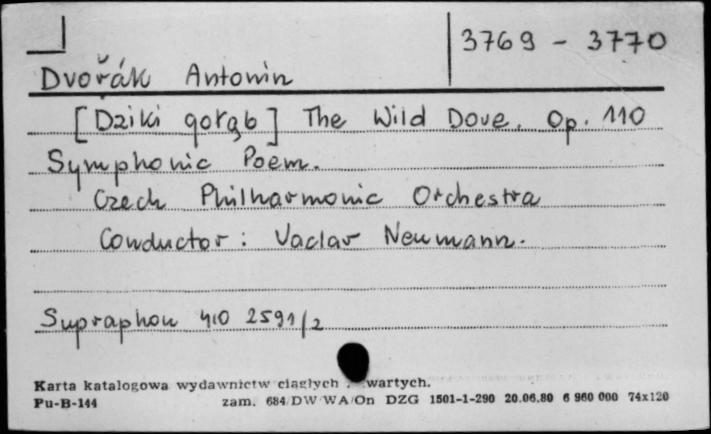 3769 - 3770
Dvořák Antonin
[Dziki gołąb] The Wild Dove. Op. 110
Symphonic Poem.
Czech Philharmonic Orchestra
Conductor: Vaclav Neumann.
Supraphon 410 2591/2
Karta katalogowa wydawnictw ciągłych wartych.
Pu-B-144 zam. 684/DW WA/On DZG 1501-1-290 20.06.80 6 960 000 74x120